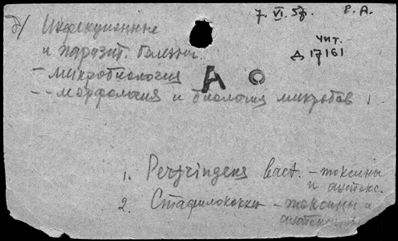 д/ Инфекционные
7. VI. 57. Р. А.
и паразит. болезни.
чит.
Д 17161
- микробиология
А О
-- морфология и биология микробов.
1. Perfringens bact. - токсины
и анатокс.
2. Стафилококки - токсины и
анатоксины